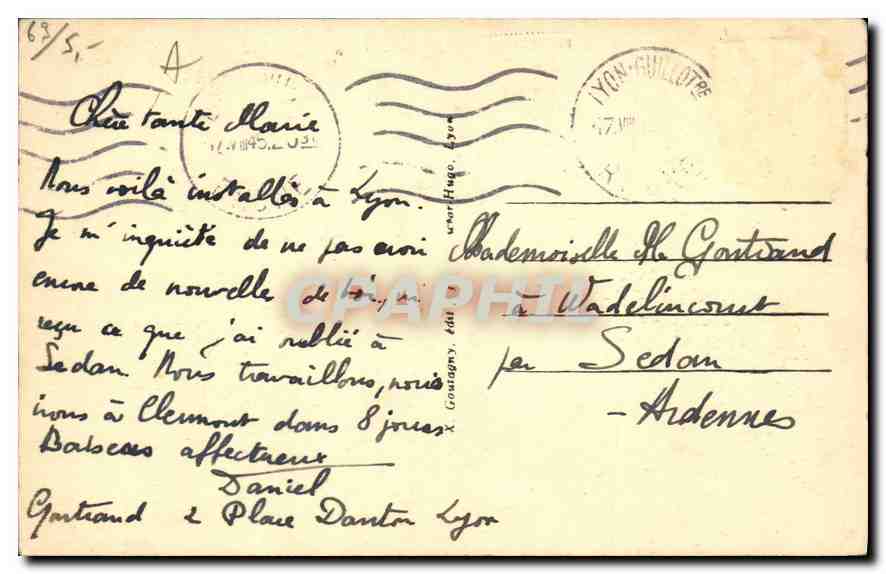 69/5,-
A
Chère tante Marie
Nous voilà installés à Lyon.
Je m'inquiète de ne pas avoir
encore de nouvelle de toi, ni
reçu ce que j'ai oublié à
Sedan. Nous travaillons, nous
irons à Clermont dans 8 jours
Baisers affectueux
Daniel
Gontrand 2 Place Danton Lyon
X. Goutagny, édit. Hugo, Lyon
LYON-GUILLOTRE
17 VIII
VIII 45
Mademoiselle M. Gontrand
à Wadelincourt
par Sedan
- Ardennes
CPAPHIL